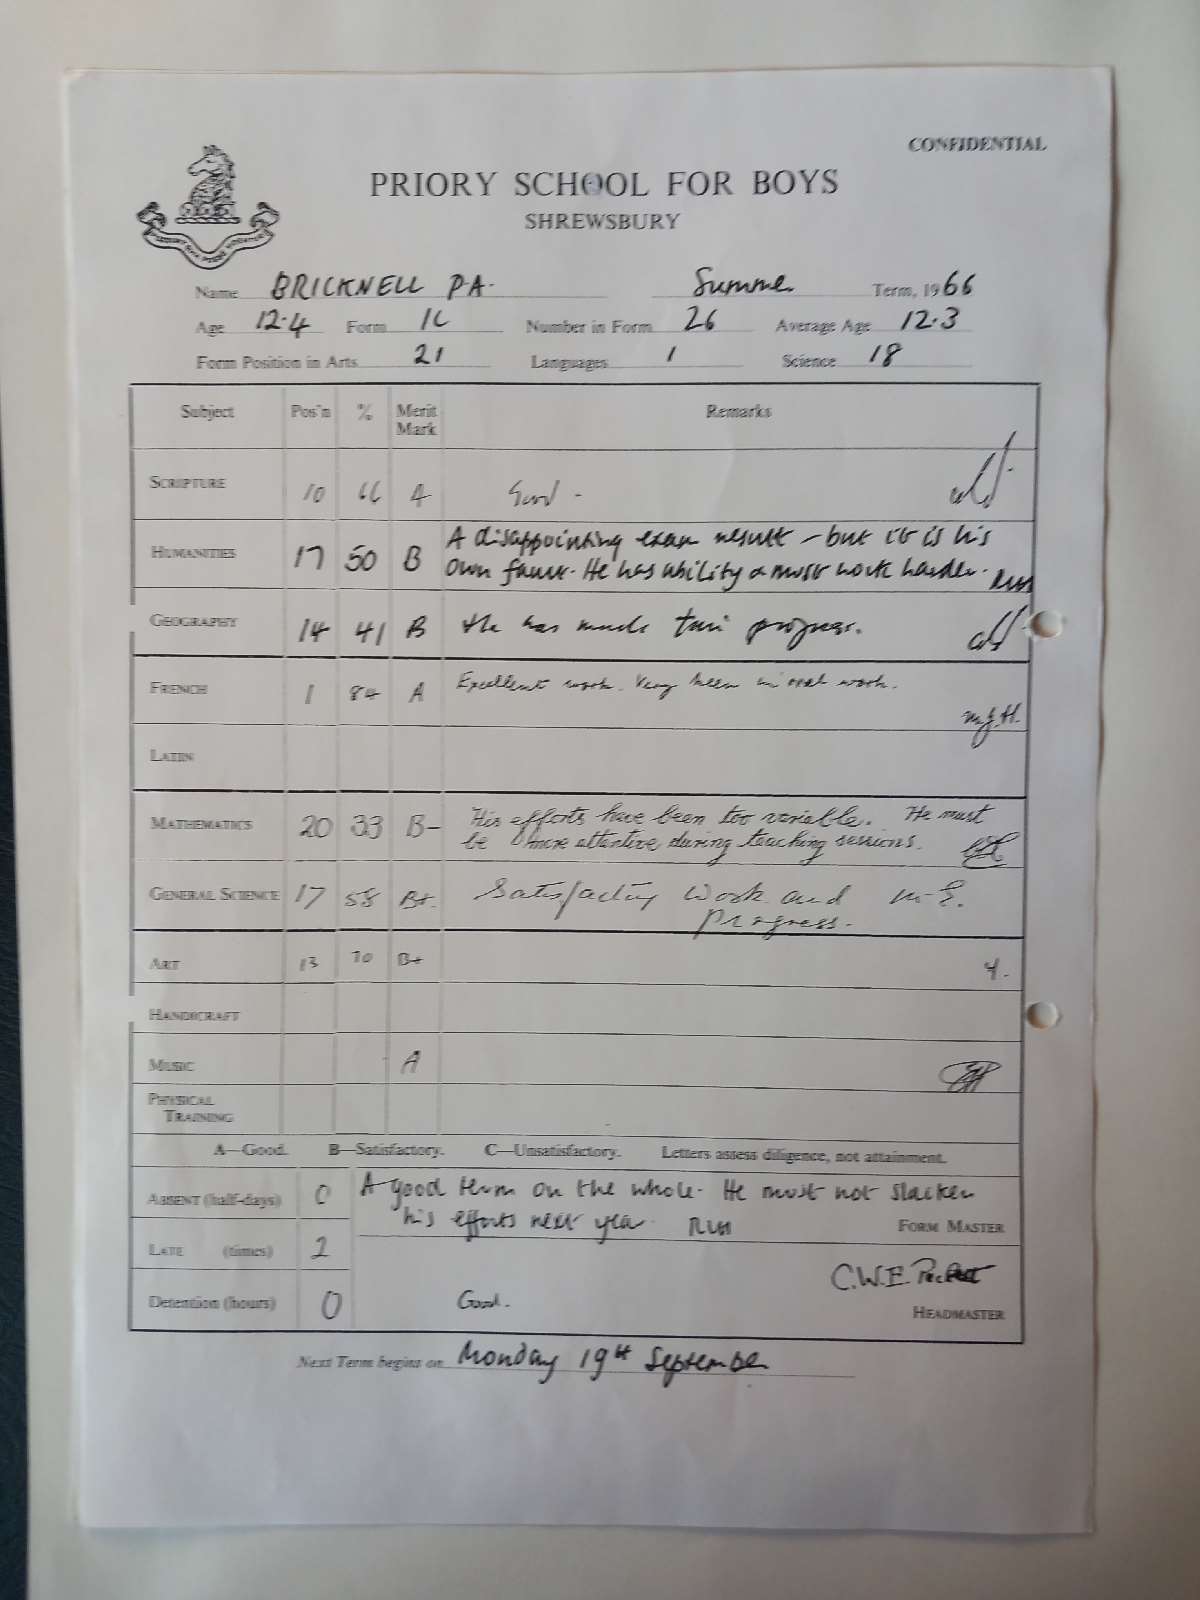 CONFIDENTIAL
PRIORY SCHOOL FOR BOYS
SHREWSBURY
Name BRICKNELL P.A. Summer Term, 1966
Age 12.4 Form 1C Number in Form 26 Average Age 12.3
Form Position in Arts 21 Languages 1 Science 18
Subject Pos'n % Merit Mark Remarks
SCRIPTURE 10 66 A Good -
HUMANITIES 17 50 B A disappointing exam result - but it is his
own fault. He has ability & must work harder. RM
GEOGRAPHY 14 41 B He has made fair progress.
FRENCH 1 84 A Excellent work. Very keen in oral work.
M.J.H.
LATIN
MATHEMATICS 20 33 B- His efforts have been too variable. He must
be more attentive during teaching sessions.
GENERAL SCIENCE 17 58 B+ Satisfactory work and M.E.
progress.
ART 13 70 B+ Y.
HANDICRAFT
MUSIC A
PHYSICAL
TRAINING
A—Good. B—Satisfactory. C—Unsatisfactory. Letters assess diligence, not attainment.
ABSENT (half-days) 0 A good term on the whole. He must not slacken
his efforts next year. RM FORM MASTER
LATE (times) 2
C.W.E. Peckett
Detention (hours) 0 Good. HEADMASTER
Next Term begins on Monday 19th September